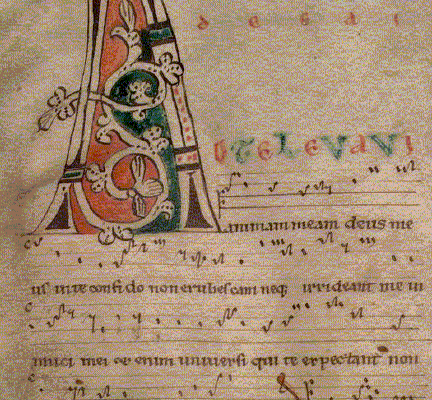 D TE LEVAVI
animam meam deus me
us in te confido non erubescam neq irrideant me in
imici mei et enim universi qui te expectant non